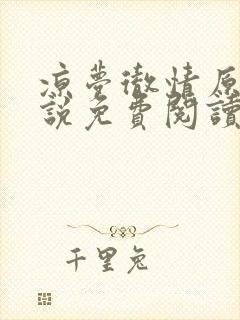 凉夢徹情原
說免費閱讀
千里兔